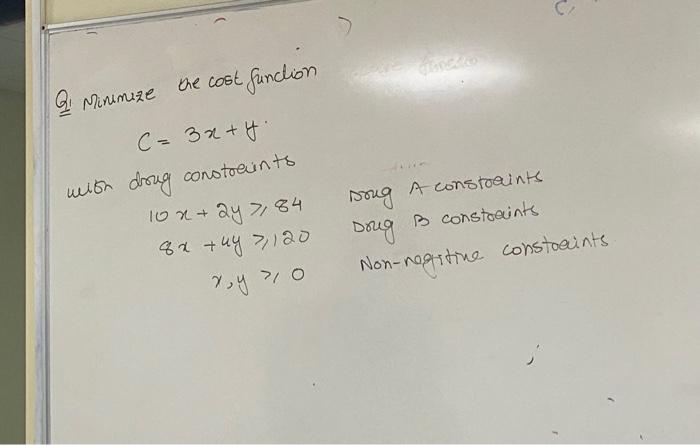 Q: Minimize the cost function
C = 3x + y.
with drug constraints
10x + 2y ≥ 84 Drug A constraints
8x + 4y ≥ 120 Drug B constraints
x, y ≥ 0 Non-negitive constraints